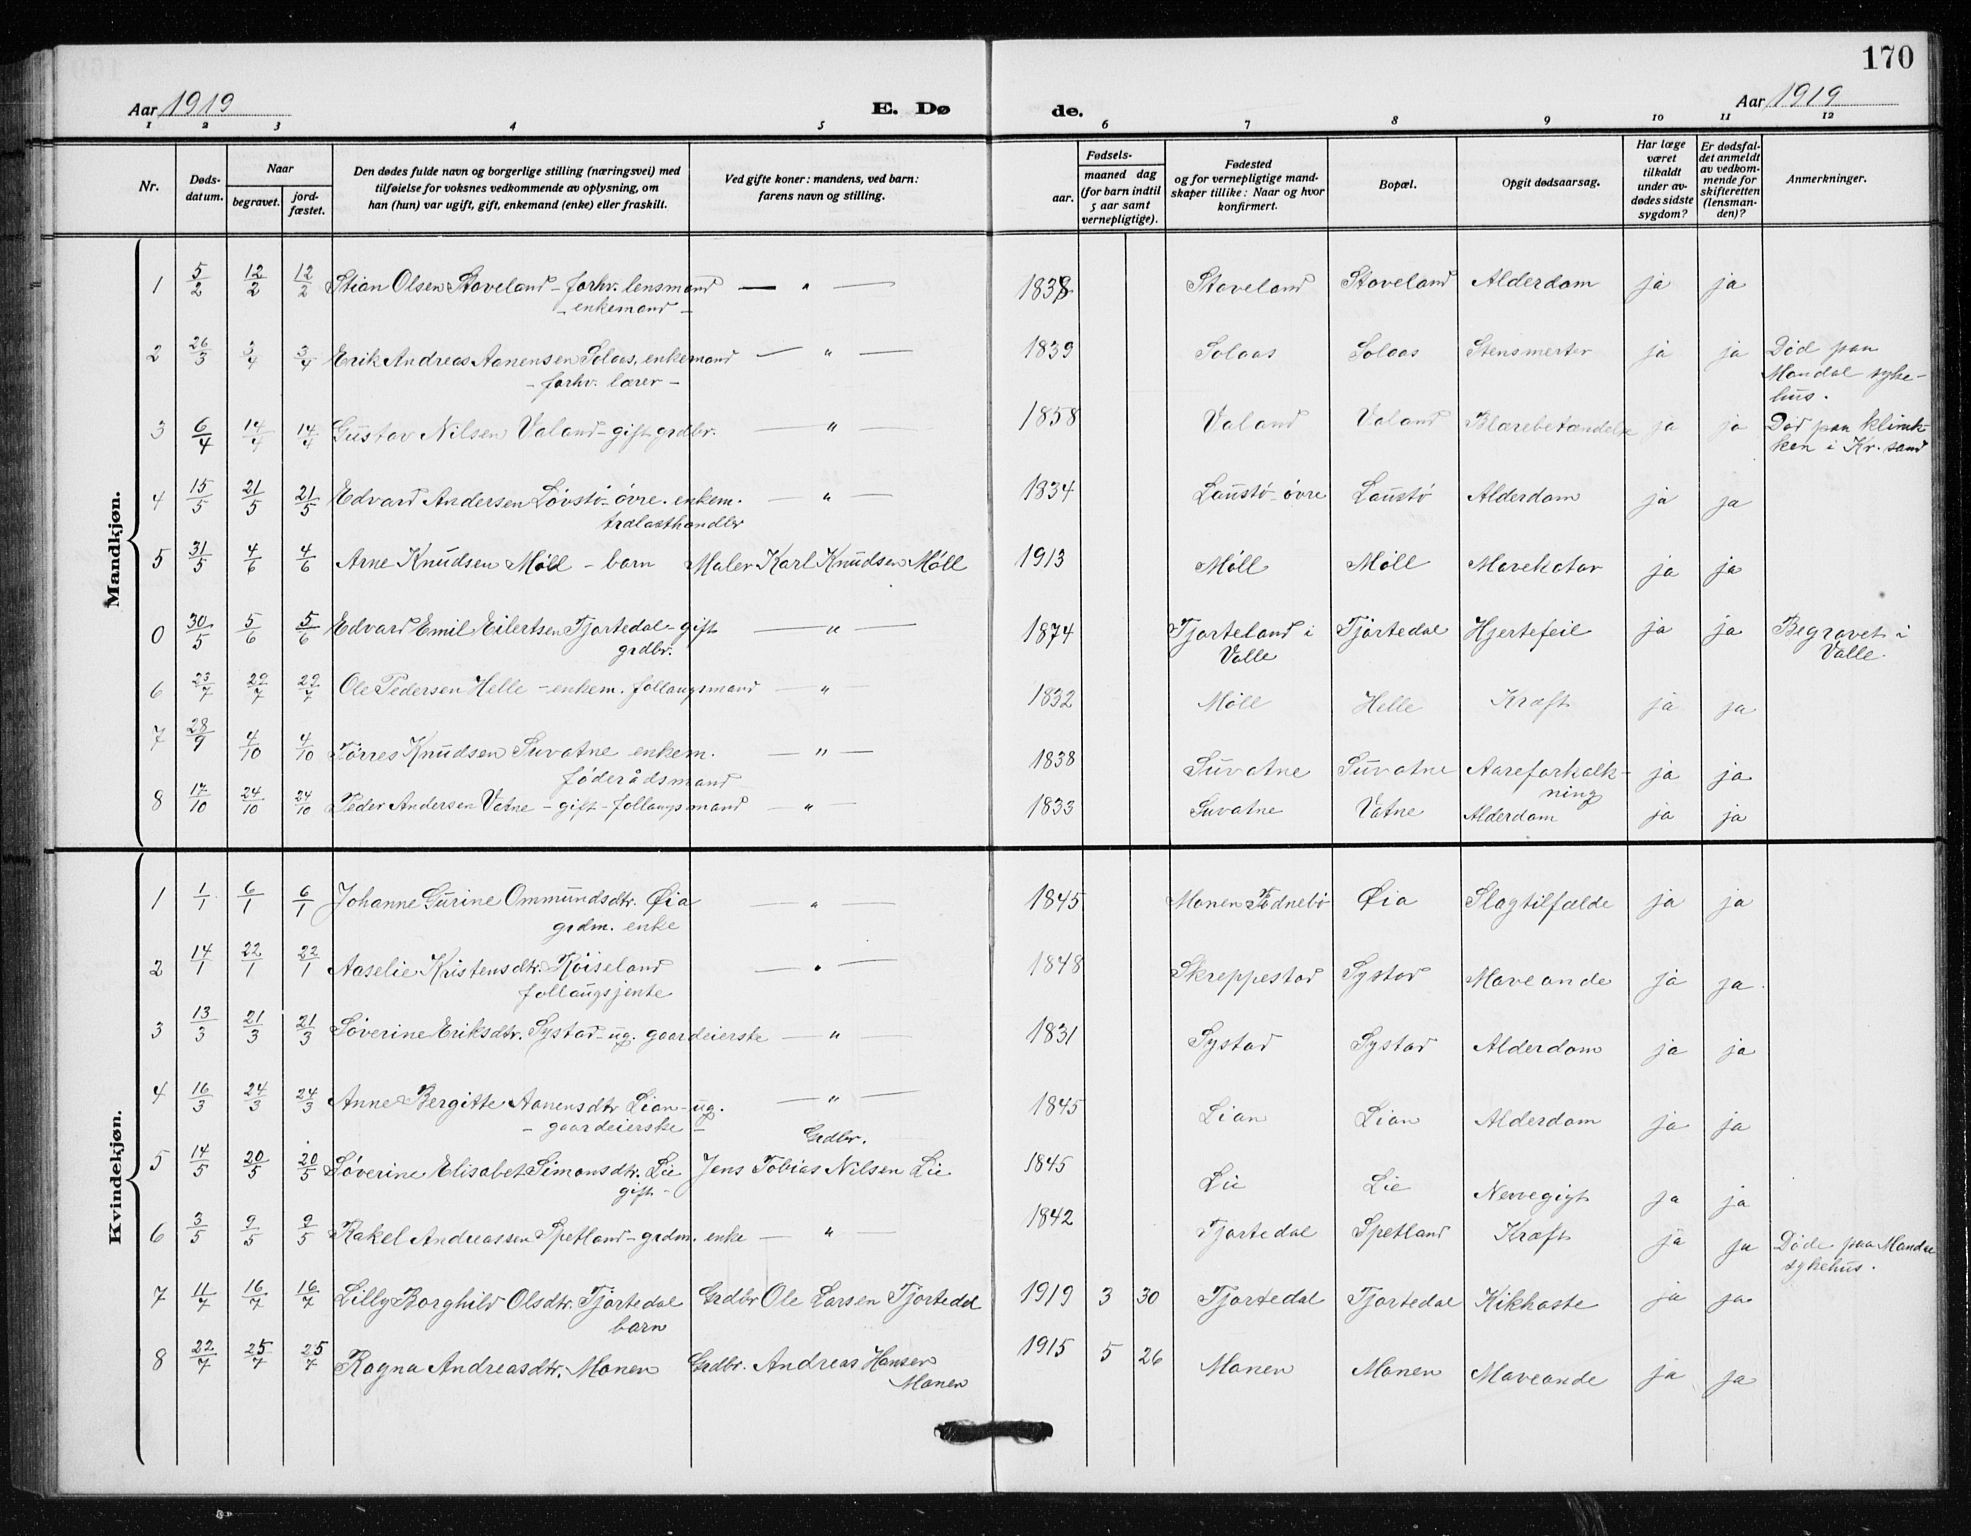 170
Aar 1919
E. Dø
de.
Aar 1919
1 2 3 4 5 6 7 8 9 10 11 12
Nr.
Døds-
datum.
Naar
begravet.
jord-
fæstet.
Den dødes fulde navn og borgerlige stilling (næringsvei) med
tilføielse for voksnes vedkommende av oplysning, om
han (hun) var ugift, gift, enkemand (enke) eller fraskilt.
Ved gifte koner: mandens, ved barn:
farens navn og stilling.
Fødsels-
aar.
maaned dag
(for barn indtil
5 aar samt
vernepligtige).
Fødested
og for vernepligtige mand-
skaper tillike: Naar og hvor
konfirmert.
Bopæl.
Opgit dødsaarsag.
Har læge
været
tilkaldt
under av-
dødes sidste
sygdom?
Er dødsfal-
det anmeldt
av vedkom-
mende for
skifteretten
(lensman-
den)?
Anmerkninger.
Mandkjøn.
1 5/2 12/2 12/2 Stian Olsen Stoveland - forhv. lensmand — " — 1838 Stoveland Stoveland Alderdom ja ja
- enkemand -
2 26/3 3/4 3/4 Erik Andreas Aanensen Solaas, enkemand — " — 1839 Solaas Solaas Stensmerter ja ja Død paa
- forhv. lærer - Mandal syke-
hus.
3 6/4 14/4 14/4 Gustav Nilsen Valand - gift grdbr. — " — 1858 Valand Valand Blærebetændelse ja ja Død paa klinik-
ken i Kr.sand
4 15/5 21/5 21/5 Edvard Andersen Løvstø - øvre. enkem. — " — 1834 Laustø - øvre Laustø Alderdom ja ja
trælasthandlr
5 31/5 4/6 4/6 Arne Knudsen Møll - barn Maler Karl Knudsen Møll 1913 Møll Møll Mavekatar ja ja
0 30/5 5/6 5/6 Edvard Emil Eilertsen Tjortedal - gift — " — 1874 Tjorteland i Tjortedal Hjertefeil ja ja Begravet i
grdbr. Valle Valle.
6 23/7 29/7 29/7 Ole Pedersen Helle - enkem. follaugsmand — " 1832 Møll Helle Kræft ja ja
7 28/9 4/10 4/10 Tørres Knudsen Suvatne enkem. — " — 1838 Suvatne Suvatne Aareforkalk- ja ja
føderådsmand ning
8 17/10 24/10 24/10 Peder Andersen Vatne - gift - follaugsmand — " — 1833 Suvatne Vatne Alderdom ja ja
Kvindekjøn.
1 1/1 6/1 6/1 Johanne Gurine Ommundsdtr. Øia — " — 1845 Monen Fodnebø Øia Slagtilfælde ja ja
grdm. enke
2 14/1 22/1 22/1 Aaselie Kristensdtr. Røiseland — " — 1848 Skreppestad Systad Maveonde ja ja.
follaugsjente
3 13/3 21/3 21/3 Søverine Eriksdtr. Systad - ug. gaardeierske — " — 1831 Systad Systad Alderdom ja ja
4 16/3 24/3 24/3 Anne Bergitte Aanensdtr Lian - ug. — " — 1845 Lian Lian Alderdom ja ja
- gaardeierske -
Grdbr.
5 14/5 20/5 20/5 Søverine Elisabet Simonsdtr. Lie Jens Tobias Nilsen Lie 1845 Lie Lie Nervegigt ja ja
gift -
6 3/5 9/5 9/5 Rakel Andreassen Spetland - grdm. enke — " — 1842 Tjortedal Spetland Kræft ja ja Døde paa Mandal
sykehus.
7 11/7 16/7 16/7 Lilly Borghild Olsdtr. Tjortedal Grdbr Ole Larsen Tjortedal 1919 3 30 Tjortedal Tjortedal Kikhoste ja ja
barn
8 22/7 25/7 25/7 Ragna Andreasdtr. Monen Grdbr. Andreas Hansen 1915 5 26 Monen Monen Maveonde ja ja
Monen